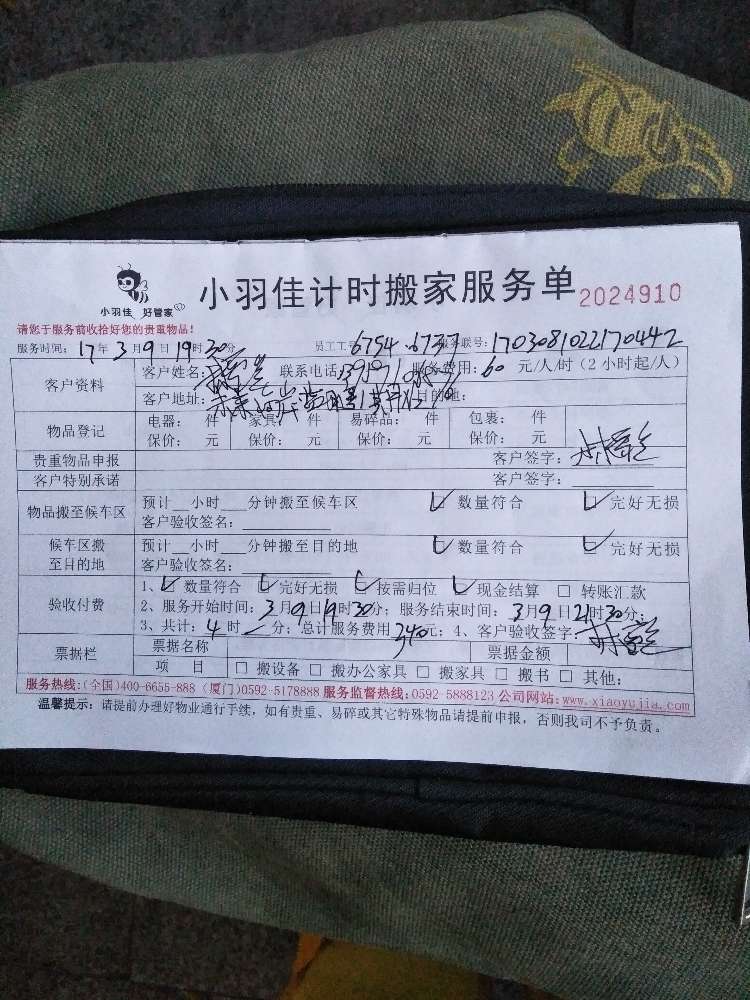 小羽佳 好管家
小羽佳计时搬家服务单 2024910
请您于服务前收拾好您的贵重物品!
服务时间: 17年3月9日19时30分 员工工号: 6794.6737 服务联号: 1703081022170442
客户资料 客户姓名: 联系电话: 服务费用: 60 元/人/时(2小时起/人)
客户地址: 目的地:
物品登记 电器: 件 家具: 件 易碎品: 件 包裹: 件
保价: 元 保价: 元 保价: 元 保价: 元
贵重物品申报 客户签字:
客户特别承诺 客户签字:
物品搬至候车区 预计__小时___分钟搬至候车区 ☑ 数量符合 ☑ 完好无损
客户验收签名:
候车区搬至目的地 预计__小时___分钟搬至目的地 ☑ 数量符合 ☑ 完好无损
客户验收签名:
验收付费 1、☑ 数量符合 ☑ 完好无损 ☑ 按需归位 ☑ 现金结算 □ 转账汇款
2、服务开始时间: 3月9日19时30分; 服务结束时间: 3月9日21时30分;
3、共计: 4时 分; 总计服务费用 340元; 4、客户验收签字:
票据栏 票据名称 票据金额
项 目 □ 搬设备 □ 搬办公家具 □ 搬家具 □ 搬书 □ 其他:
服务热线:(全国)400-6655-888 (厦门)0592-5178888 服务监督热线:0592-5888123 公司网站:www.xiaoyujia.com
温馨提示: 请提前办理好物业通行手续, 如有贵重、易碎或其它特殊物品请提前申报, 否则我司不予负责。